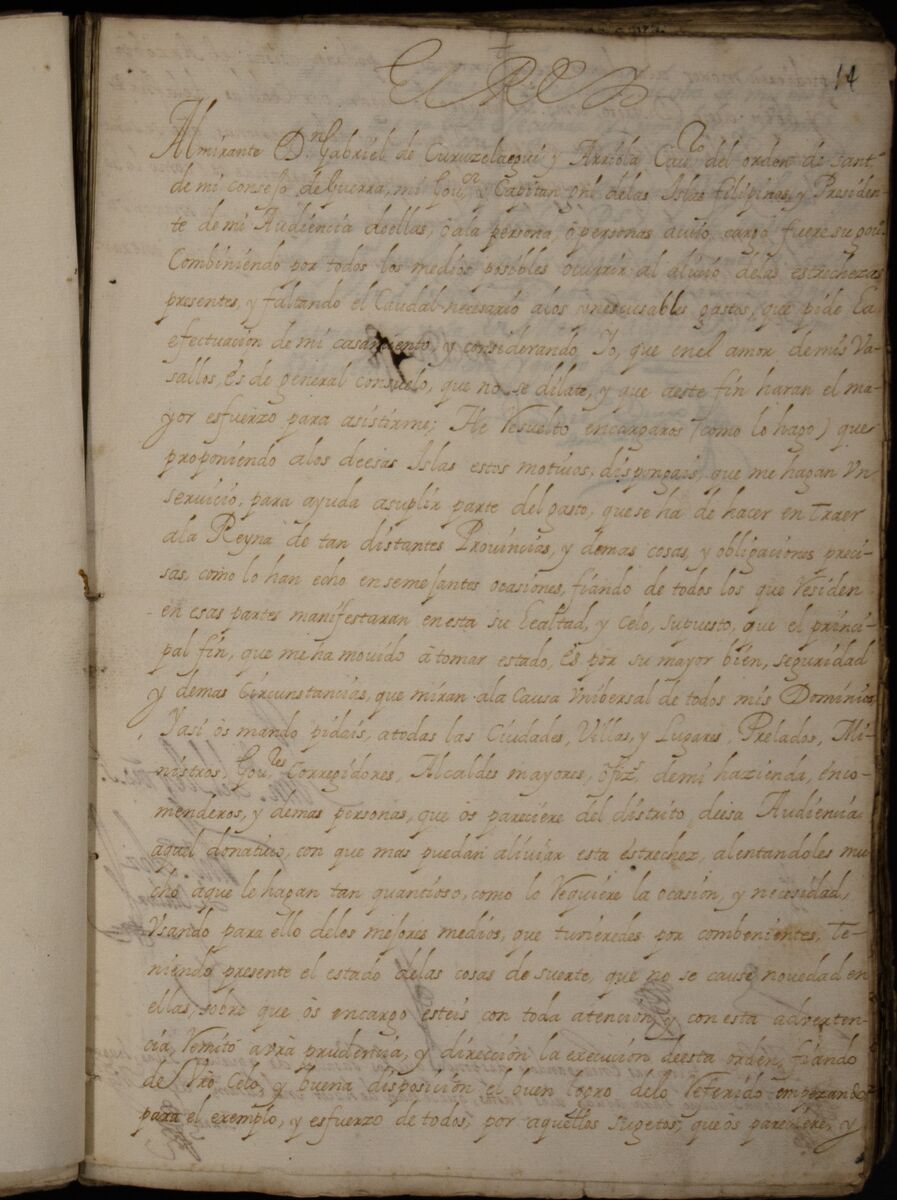 14
El Rey
Almirante Dn Gabriel de Curuzelaegui y Arriola Cauro del orden de Sant-
de mi consejo de Guerra, mi Gour y Capitan gnl delas Islas filipinas, y Presiden-
te de mi Audiencia deellas, o ala persona, o personas acuio cargo fuere su gouo
Combiniendo por todos los medios posibles ocurrir al aliuio delas estrechezas
presentes, y faltando el Caudal necesario alos ynescusables gastos, que pide la
efectuacion de mi casamiento, y considerando Yo, que enel amor demis Va-
sallos, es de general consuelo, que no se dilate, y que aeste fin haran el ma-
yor esfuerzo para asistirme; He Resuelto encargaros (como lo hago) que
proponiendo alos deesas Islas estos motiuos, dispongais, que me hagan Vn
seruicio, para ayuda asuplir parte del gasto, quese ha de hacer en traer
ala Reyna de tan distantes Prouincias, y demas cosas, y obligaciones preci-
sas, como lo han echo en semejantes ocasiones, fiando de todos los que Residen
en esas partes manifestaran enesta su Lealtad, y Celo, supuesto, que el princi-
pal fin, que me ha mouido a tomar estado, es por su mayor bien, seguridad
y demas Circunstancias, que miran ala Causa Vniversal de todos mis Dominios
Yasi os mando pidais, atodas las Ciudades, Villas, y Lugares, Prelados, Mi-
nistros, Goures Corregidores, Alcaldes mayores, ofizs demi hazienda, enco-
menderos, y demas personas, que os pareciere del distrito, deesa Audiencia
aquel donatiuo, con que mas puedan aliuiar esta estrechez, alentandoles mu-
cho aque le hagan tan quantioso, como lo Requiere la ocasion, y necesidad,
Vsando para ello delos mejores medios, que tuuieredes por combenientes, te-
niendo presente el estado delas cosas de suerte, que no se cause nouedad en
ellas, sobre que os encargo esteis con toda atencion, y con esta aduerten-
cia, Remito avra prudencia, y direccion la execucion deesta orden, fiando
de Vro Celo, y buena disposicion el buen logro delo Referido empezando
para el exemplo, y esfuerzo de todos, por aquellos sugetos, que os pareciere, y